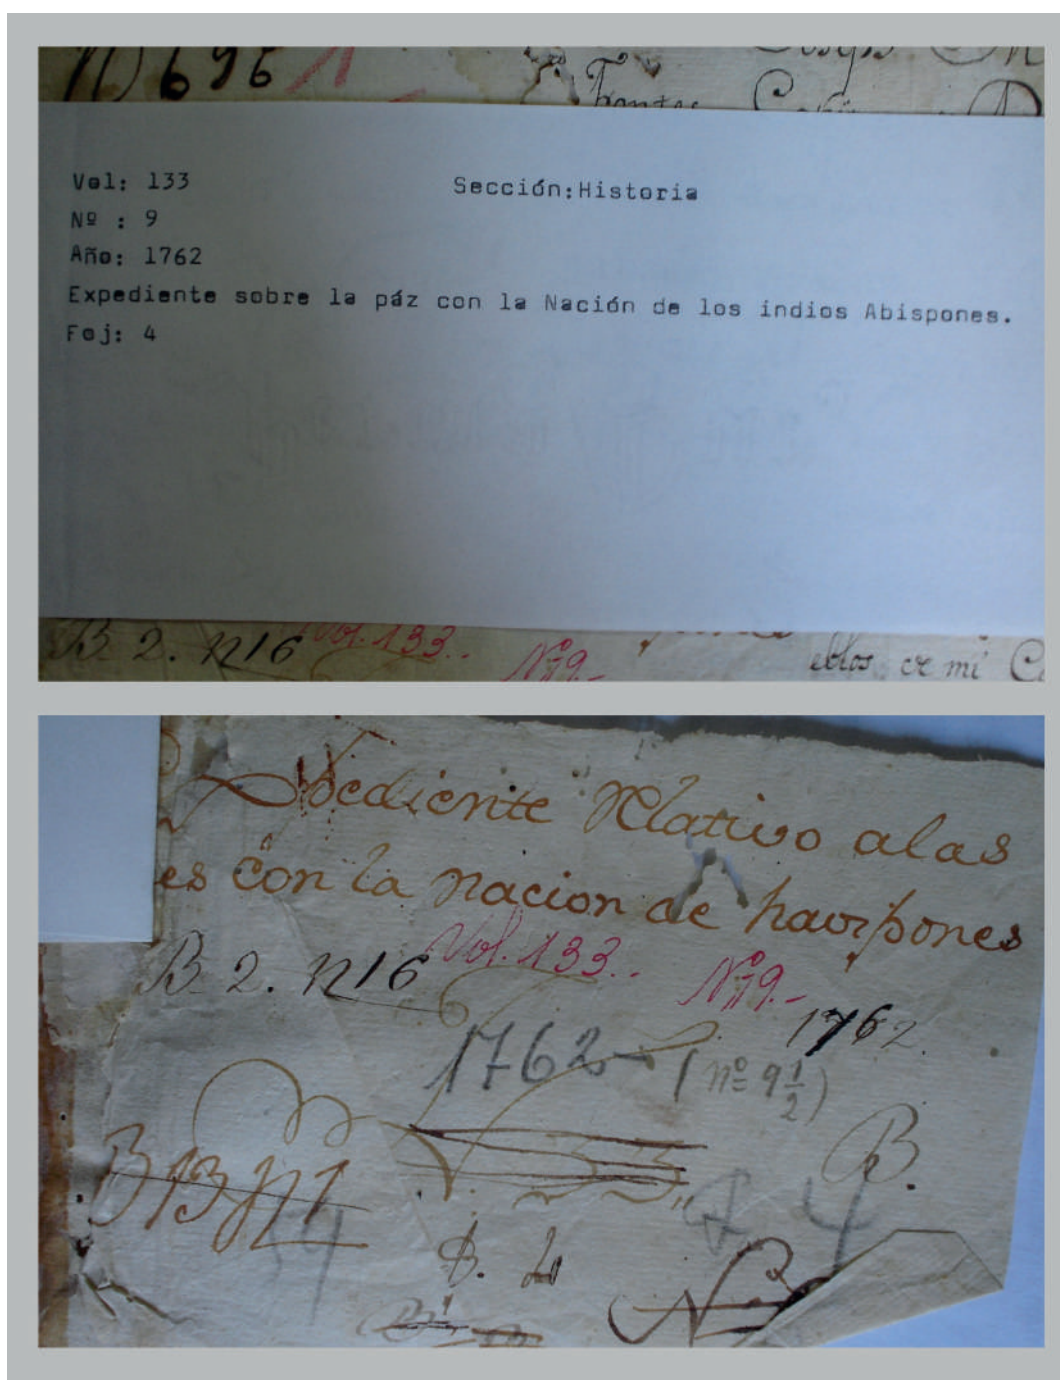 N 696 1
Vol: 133
Sección:Historia
Nº : 9
Año: 1762
Expediente sobre la páz con la Nación de los indios Abispones.
Foj: 4
B 2. n16 Vol. 133.. Nº 9.-
de mi
Expediente Relativo alas
es con la nacion de havispones
B 2. n16 Vol. 133.. Nº 9.-
1762.
1762 (nº 9 1/2)
B 13 n 1
B.
4